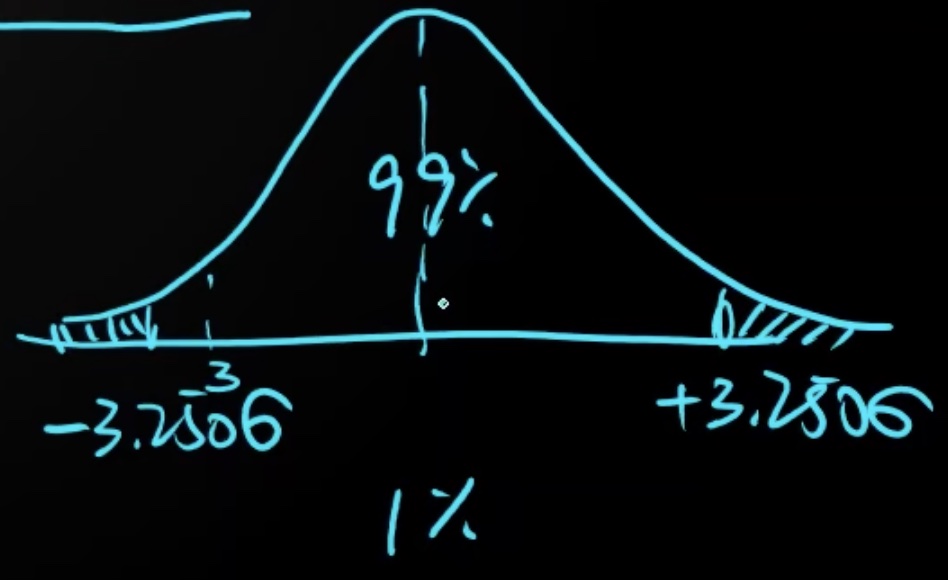 99%
-3
-3.250σ +3.250σ
1%